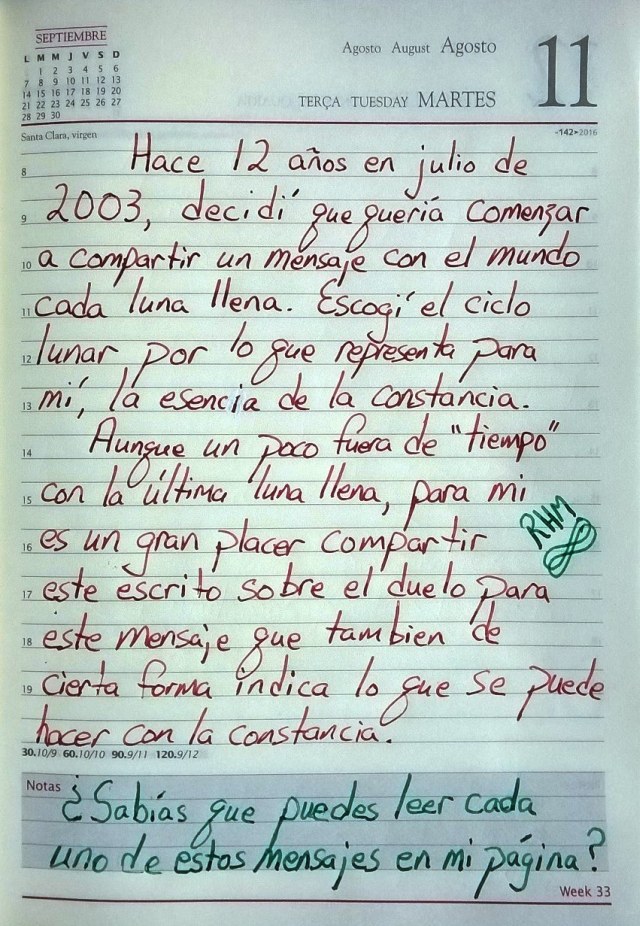 SEPTIEMBRE
L M M J V S D
1 2 3 4 5 6
7 8 9 10 11 12 13
14 15 16 17 18 19 20
21 22 23 24 25 26 27
28 29 30
Agosto August Agosto
11
TERÇA TUESDAY MARTES
Santa Clara, virgen
-142-2016
8 Hace 12 años en julio de
9 2003, decidí que quería comenzar
10 a compartir un mensaje con el mundo
11 cada luna llena. Escogí el ciclo
12 lunar por lo que representa para
13 mí, la esencia de la constancia.
14 Aunque un poco fuera de "tiempo"
15 con la última luna llena, para mi
RHM
16 es un gran placer compartir
17 este escrito sobre el duelo para
18 este mensaje que tambien de
19 cierta forma indica lo que se puede
hacer con la constancia.
30.10/9 60.10/10 90.9/11 120.9/12
Notas
¿Sabías que puedes leer cada
uno de estos mensajes en mi página?
Week 33